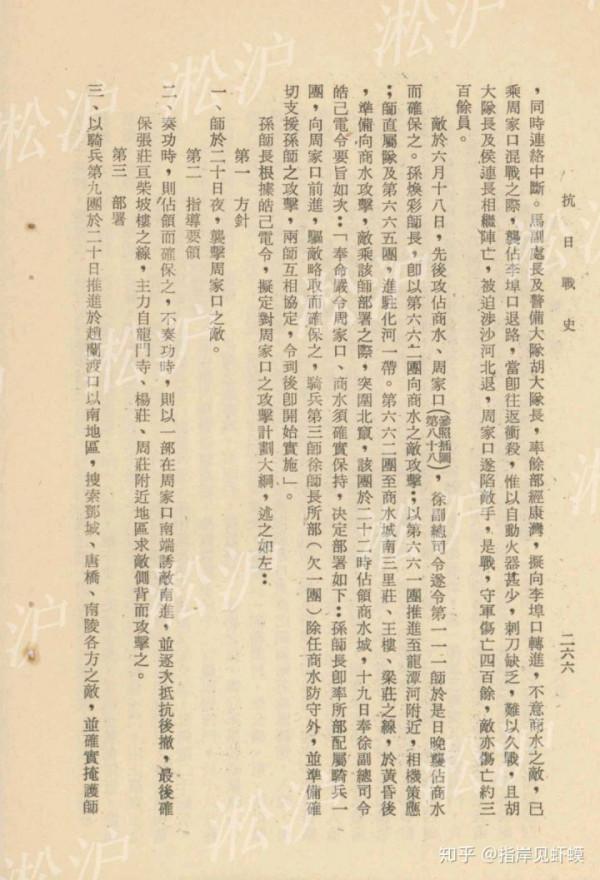 抗日戰史
二六六
，同時連絡中斷。馬副處長及警備大隊胡大隊長，率餘部經康灣，擬向李埠口轉進，不意商水之敵，已
乘周家口混戰之際，襲佔李埠口退路，當卽往返衝殺，惟以自動火器甚少，刺刀缺乏，難以久戰，且胡
大隊長及侯連長相繼陣亡，被迫涉沙河北退，周家口遂陷敵手，是戰，守軍傷亡四百餘，敵亦傷亡約三
百餘員。
敵於六月十八日，先後攻佔商水、周家口（參照插圖第八十八），徐副總司令遂令第一一二師於是日晚襲佔商水
而確保之。孫煥彩師長，卽以第六六二團向商水之敵攻擊；以第六六一團推進至龍潭河附近，相機策應
；師直屬隊及第六六五團，進駐化河一帶。第六六二團至商水城南三里莊、王樓、梁莊之線，於黃昏後
，準備向商水攻擊，敵乘該師部署之際，突圍北竄，該團於二十二時佔領商水城，十九日奉徐副總司令
皓己電令要旨如次：「奉命嚴令周家口、商水須確實保持，決定部署如下：孫師長卽率所部配屬騎兵一
團，向周家口前進，驅敵略取而確保之，騎兵第三師徐師長所部（欠一團）除任商水防守外，並準備確
切支援孫師之攻擊，兩師互相協定，令到後卽開始實施」。
孫師長根據皓己電令，擬定對周家口之攻擊計劃大綱，述之如左：
第一　方針
一、師於二十日夜，襲擊周家口之敵。
第二　指導要領
二、奏功時，則佔領而確保之，不奏功時，則以一部在周家口南端誘敵南進，並逐次抵抗後撤，最後確
保張莊亘柴坡樓之線，主力自龍門寺、楊莊、周莊附近地區求敵側背而攻擊之。
第三　部署
三、以騎兵第九團於二十日推進於趙蘭渡口以南地區，搜索鄧城、唐橋、南陵各方之敵，並確實掩護師
淞沪
知乎 @指岸见虾蟆